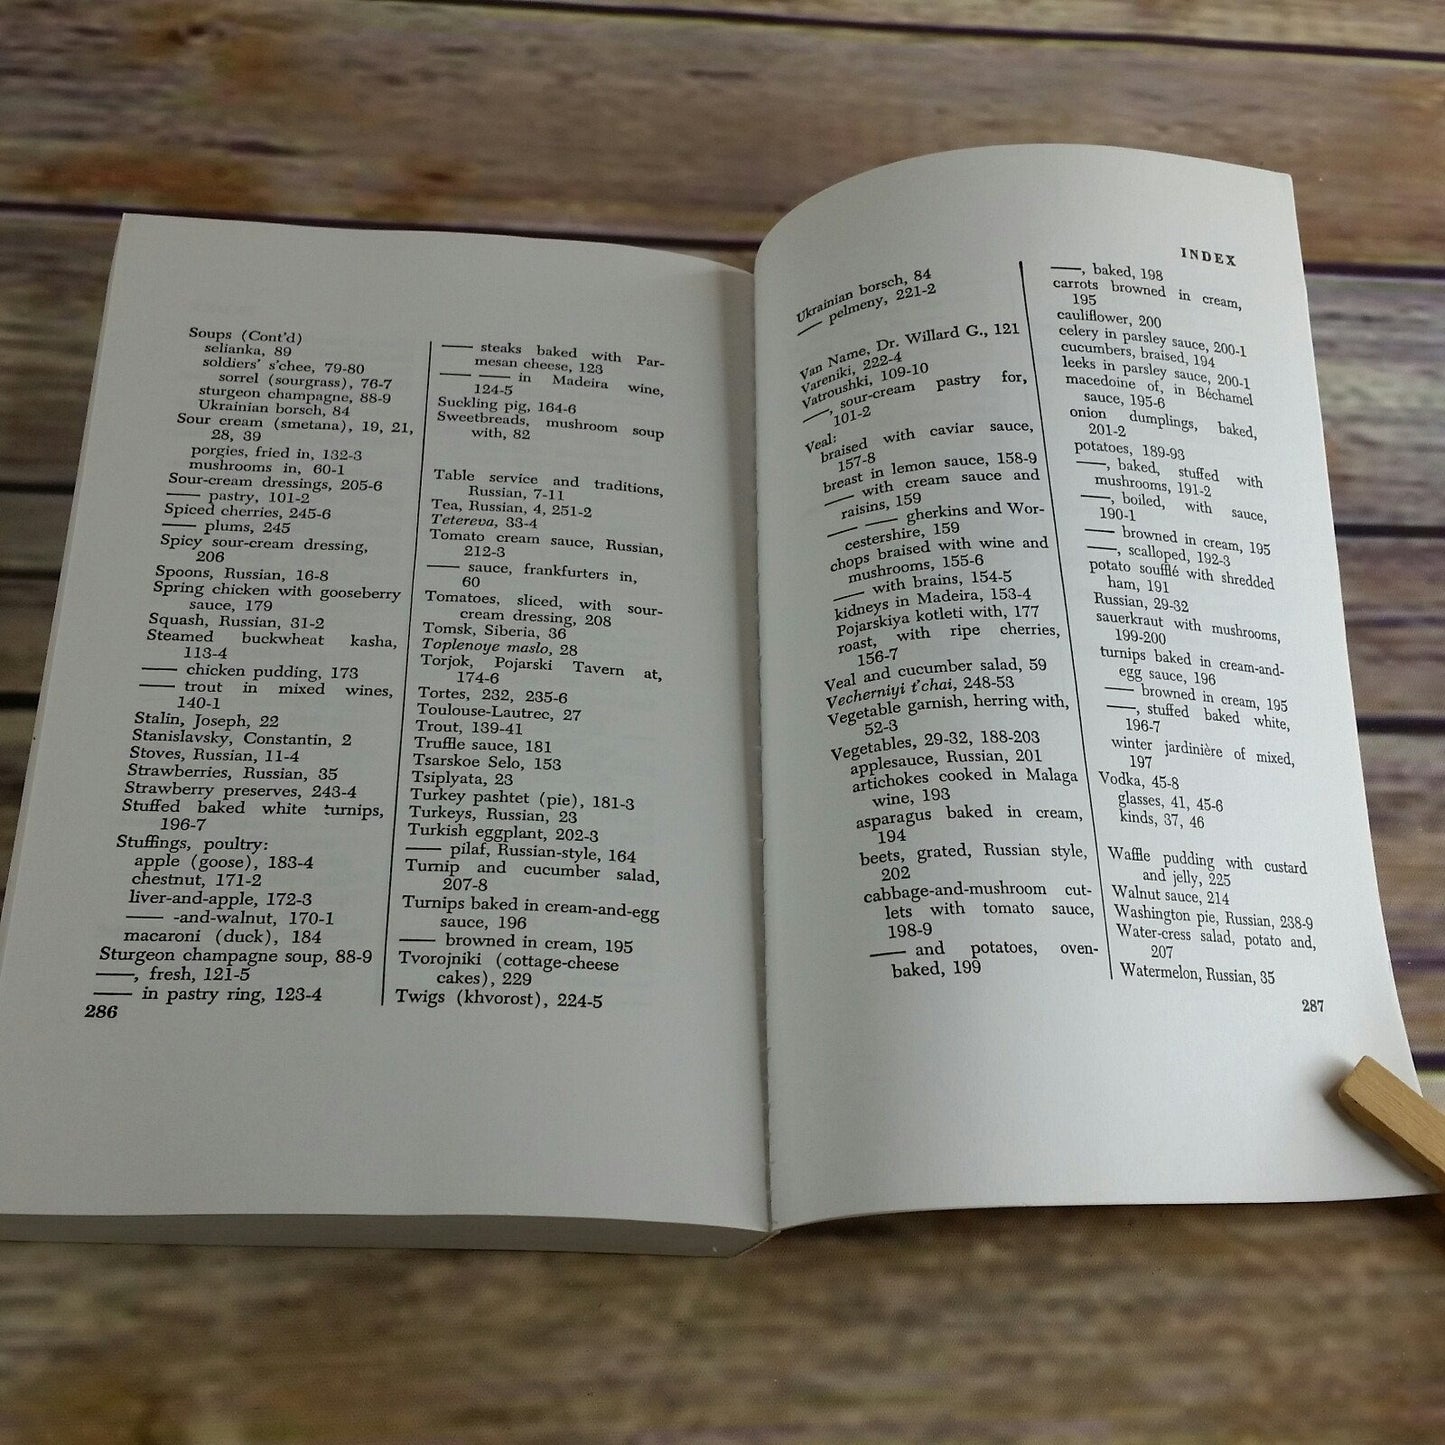 Soups (Cont'd)
selianka, 89
soldiers' s'chee, 79-80
sorrel (sourgrass), 76-7
sturgeon champagne, 88-9
Ukrainian borsch, 84
Sour cream (smetana), 19, 21,
28, 39
porgies, fried in, 132-3
mushrooms in, 60-1
Sour-cream dressings, 205-6
—— pastry, 101-2
Spiced cherries, 245-6
—— plums, 245
Spicy sour-cream dressing,
206
Spoons, Russian, 16-8
Spring chicken with gooseberry
sauce, 179
Squash, Russian, 31-2
Steamed buckwheat kasha,
113-4
—— chicken pudding, 173
—— trout in mixed wines,
140-1
Stalin, Joseph, 22
Stanislavsky, Constantin, 2
Stoves, Russian, 11-4
Strawberries, Russian, 35
Strawberry preserves, 243-4
Stuffed baked white turnips,
196-7
Stuffings, poultry:
apple (goose), 183-4
chestnut, 171-2
liver-and-apple, 172-3
—— -and-walnut, 170-1
macaroni (duck), 184
Sturgeon champagne soup, 88-9
——, fresh, 121-5
—— in pastry ring, 123-4
286
—— steaks baked with Par-
mesan cheese, 123
—— —— in Madeira wine,
124-5
Suckling pig, 164-6
Sweetbreads, mushroom soup
with, 82
Table service and traditions,
Russian, 7-11
Tea, Russian, 4, 251-2
Tetereva, 33-4
Tomato cream sauce, Russian,
212-3
—— sauce, frankfurters in,
60
Tomatoes, sliced, with sour-
cream dressing, 208
Tomsk, Siberia, 36
Toplenoye maslo, 28
Torjok, Pojarski Tavern at,
174-6
Tortes, 232, 235-6
Toulouse-Lautrec, 27
Trout, 139-41
Truffle sauce, 181
Tsarskoe Selo, 153
Tsiplyata, 23
Turkey pashtet (pie), 181-3
Turkeys, Russian, 23
Turkish eggplant, 202-3
—— pilaf, Russian-style, 164
Turnip and cucumber salad,
207-8
Turnips baked in cream-and-egg
sauce, 196
—— browned in cream, 195
Tvorojniki (cottage-cheese
cakes), 229
Twigs (khvorost), 224-5
INDEX
Ukrainian borsch, 84
—— pelmeny, 221-2
Van Name, Dr. Willard G., 121
Vareniki, 222-4
Vatroushki, 109-10
——, sour-cream pastry for,
101-2
Veal:
braised with caviar sauce,
157-8
breast in lemon sauce, 158-9
—— with cream sauce and
raisins, 159
—— —— gherkins and Wor-
cestershire, 159
chops braised with wine and
mushrooms, 155-6
—— with brains, 154-5
kidneys in Madeira, 153-4
Pojarskiya kotleti with, 177
roast, with ripe cherries,
156-7
Veal and cucumber salad, 59
Vecherniyi t'chai, 248-53
Vegetable garnish, herring with,
52-3
Vegetables, 29-32, 188-203
applesauce, Russian, 201
artichokes cooked in Malaga
wine, 193
asparagus baked in cream,
194
beets, grated, Russian style,
202
cabbage-and-mushroom cut-
lets with tomato sauce,
198-9
—— and potatoes, oven-
baked, 199
——, baked, 198
carrots browned in cream,
195
cauliflower, 200
celery in parsley sauce, 200-1
cucumbers, braised, 194
leeks in parsley sauce, 200-1
macedoine of, in Béchamel
sauce, 195-6
onion dumplings, baked,
201-2
potatoes, 189-93
——, baked, stuffed with
mushrooms, 191-2
——, boiled, with sauce,
190-1
—— browned in cream, 195
——, scalloped, 192-3
potato soufflé with shredded
ham, 191
Russian, 29-32
sauerkraut with mushrooms,
199-200
turnips baked in cream-and-
egg sauce, 196
—— browned in cream, 195
——, stuffed baked white,
196-7
winter jardinière of mixed,
197
Vodka, 45-8
glasses, 41, 45-6
kinds, 37, 46
Waffle pudding with custard
and jelly, 225
Walnut sauce, 214
Washington pie, Russian, 238-9
Water-cress salad, potato and,
207
Watermelon, Russian, 35
287